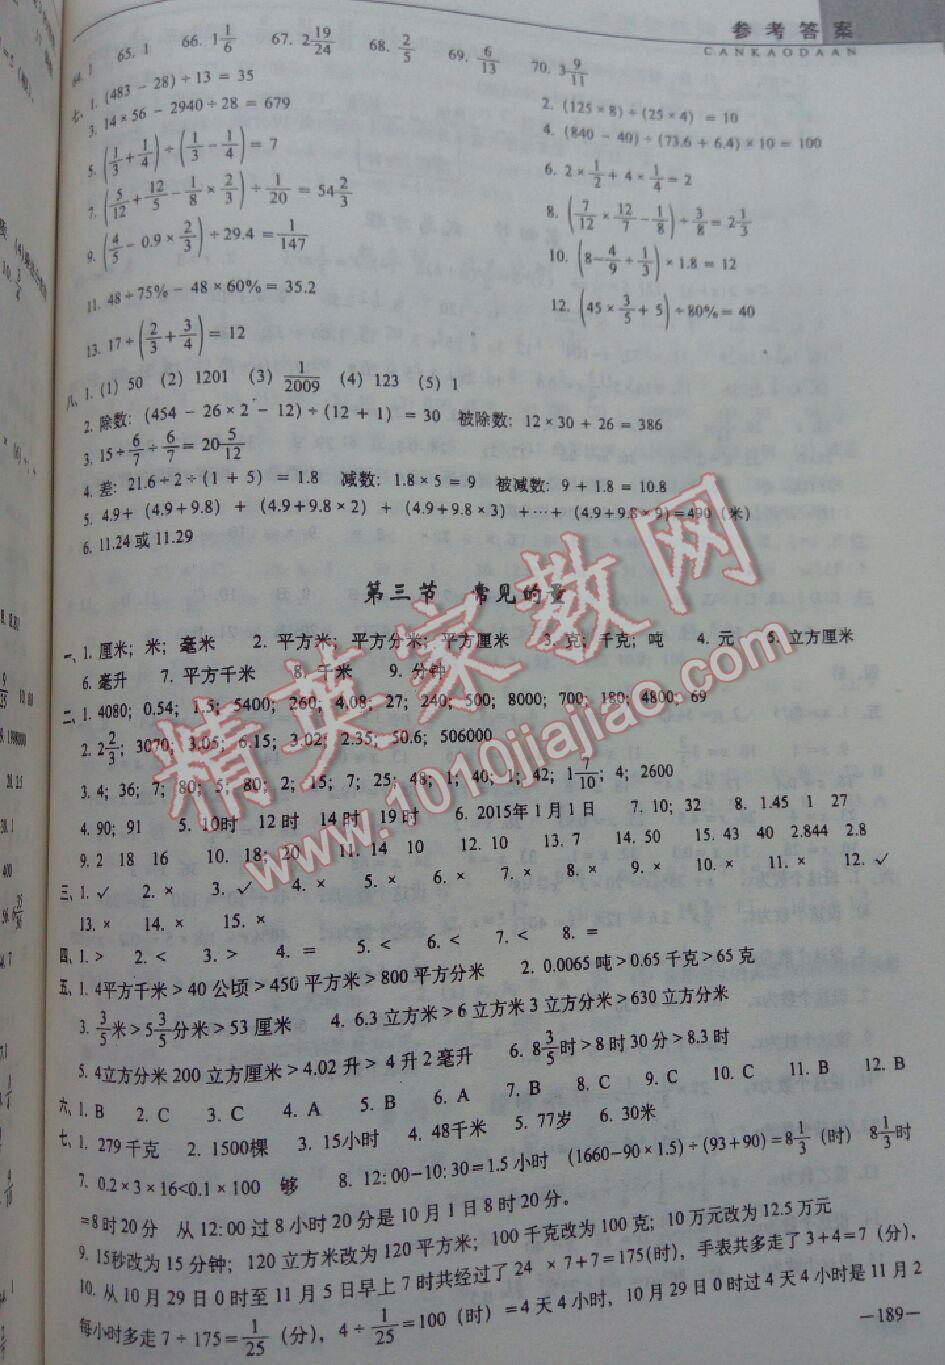 参考答案
CANKAODAAN
64. 1 65. 1 66. 1 1/6 67. 2 19/24 68. 2/5 69. 6/13 70. 3 9/11
七、1. (483 − 28) ÷ 13 = 35 2. (125 × 8) ÷ (25 × 4) = 10
3. 14 × 56 − 2940 ÷ 28 = 679 4. (840 − 40) ÷ (73.6 + 6.4) × 10 = 100
5. (1/3 + 1/4) ÷ (1/3 − 1/4) = 7 6. 2 × 1/2 + 4 × 1/4 = 2
7. (5/12 + 12/5 − 1/8 × 2/3) ÷ 1/20 = 54 2/3 8. (7/12 × 12/7 − 1/8) ÷ 3/8 = 2 1/3
9. (4/5 − 0.9 × 2/3) ÷ 29.4 = 1/147 10. (8 − 4/9 ÷ 1/3) × 1.8 = 12
11. 48 ÷ 75% − 48 × 60% = 35.2 12. (45 × 3/5 + 5) ÷ 80% = 40
13. 17 ÷ (2/3 + 3/4) = 12
八、1. (1) 50 (2) 1201 (3) 1/2009 (4) 123 (5) 1
2. 除数: (454 − 26 × 2 − 12) ÷ (12 + 1) = 30 被除数: 12 × 30 + 26 = 386
3. 15 ÷ 6/7 ÷ 6/7 = 20 5/12
4. 差: 21.6 ÷ 2 ÷ (1 + 5) = 1.8 减数: 1.8 × 5 = 9 被减数: 9 + 1.8 = 10.8
5. 4.9 + (4.9 + 9.8) + (4.9 + 9.8 × 2) + (4.9 + 9.8 × 3) + … + (4.9 + 9.8 × 9) = 490 (米)
6. 11.24 或 11.29
第三节 常见的量
一、1. 厘米; 米; 毫米 2. 平方米; 平方分米; 平方厘米 3. 克; 千克; 吨 4. 元 5. 立方厘米
6. 毫升 7. 平方千米 8. 千米 9. 分钟
二、1. 4080; 0.54; 1.5; 5400; 260; 4.08; 27; 240; 500; 8000; 700; 180; 4800; 69
2. 2 2/3; 3070; 3.05; 6.15; 3.02; 2.35; 50.6; 506000
3. 4; 36; 7; 80; 5; 80; 2; 15; 7; 25; 48; 1; 40; 1; 42; 1 7/10; 4; 2600
4. 90; 91 5. 10时 12时 14时 19时 6. 2015年1月1日 7. 10; 32 8. 1.45 1 27
9. 2 18 16 10. 18; 20 11. 14 10 12. 10 13. 7 14. 50 15. 43 40 2.844 2.8
三、1. ✓ 2. × 3. ✓ 4. × 5. × 6. × 7. × 8. × 9. × 10. × 11. × 12. ✓
13. × 14. × 15. ×
四、1. > 2. < 3. > 4. = 5. < 6. < 7. < 8. =
五、1. 4平方千米 > 40公顷 > 450平方米 > 800平方分米 2. 0.0065吨 > 0.65千克 > 65克
3. 3/5米 > 5 3/5分米 > 53厘米 4. 6.3立方米 > 6立方米3立方分米 > 630立方分米
5. 4立方分米200立方厘米 > 4.02升 > 4升2毫升 6. 8 3/5时 > 8时30分 > 8.3时
六、1. B 2. C 3. C 4. A 5. B 6. A 7. B 8. C 9. C 10. C 11. B 12. B
七、1. 279千克 2. 1500棵 3. 15小时 4. 48千米 5. 77岁 6. 30米
7. 0.2 × 3 × 16 < 0.1 × 100 够 8. 12:00−10:30 = 1.5小时 (1660−90 × 1.5) ÷ (93 + 90) = 8 1/3 (时) 8 1/3时
= 8时20分 从12:00过8小时20分是10月1日8时20分。
9. 15秒改为15分钟; 120立方米改为120平方米; 100千克改为100克; 10万元改为12.5万元
10. 从10月29日0时至11月5日早上7时共经过了24 × 7 + 7 = 175(时), 手表共多走了3 + 4 = 7 (分),
每小时多走7 ÷ 175 = 1/25 (分), 4 ÷ 1/25 = 100 (时) = 4天4小时, 10月29日0时过4天4小时是11月2
—189—
精英家教网
www.1010jiajiao.com